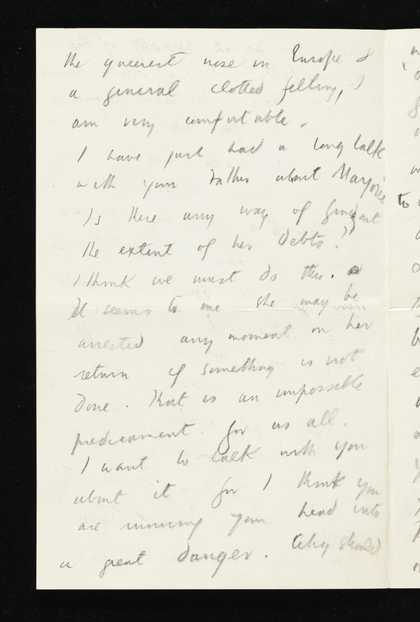 the queerest nose in Europe &
a general clotted feeling, I
am very comfortable.
I have just had a long talk
with your Father about Marjorie
Is there any way of finding out
the extent of her debts?
I think we must do this.
It seems to me she may be
arrested any moment on her
return if something is not
done. That is an impossible
predicament for us all.
I want to talk with you
about it for I think you
are running your head into
a great danger. Why should